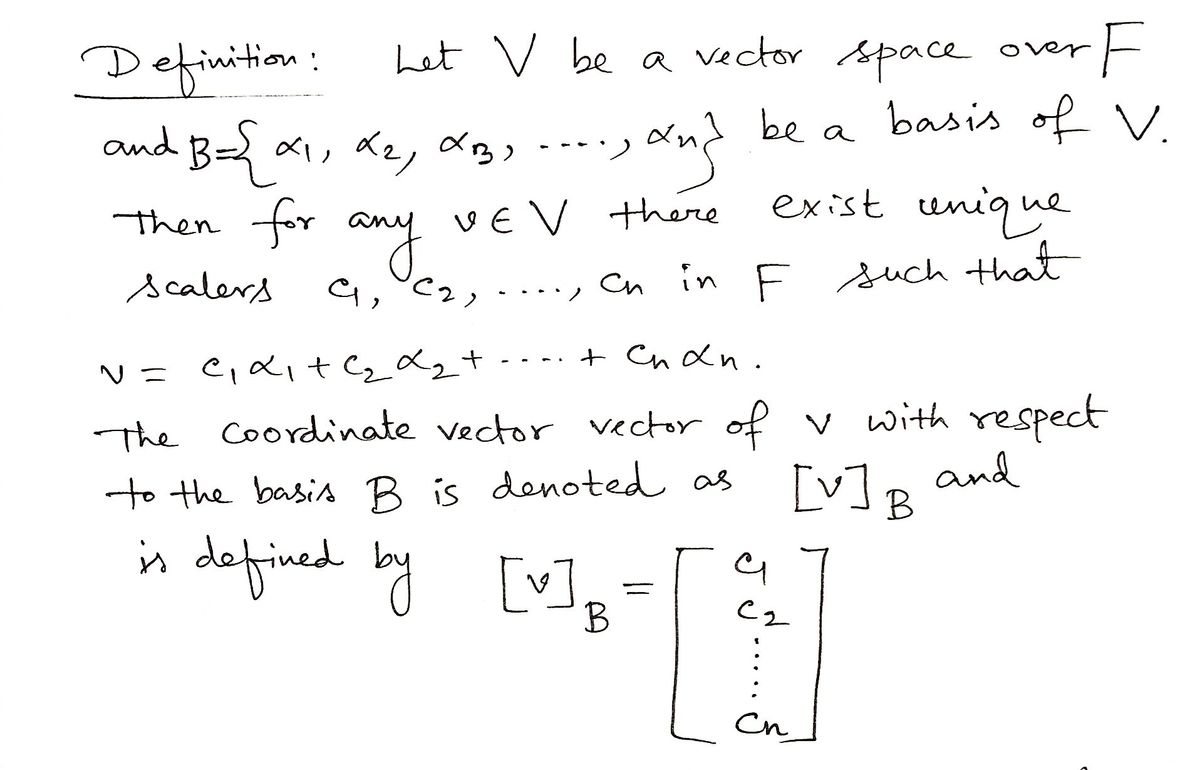 Definition: Let V be a vector space over F
and B={α1, α2, α3, ....., αn} be a basis of V.
Then for any v ∈ V there exist unique
scalers c1, c2, ....., cn in F such that
v = c1α1 + c2α2 + ..... + cnαn.
The coordinate vector vector of v with respect
to the basis B is denoted as [v]B and
is defined by [v]B = [
c1
c2
⋮
cn
]